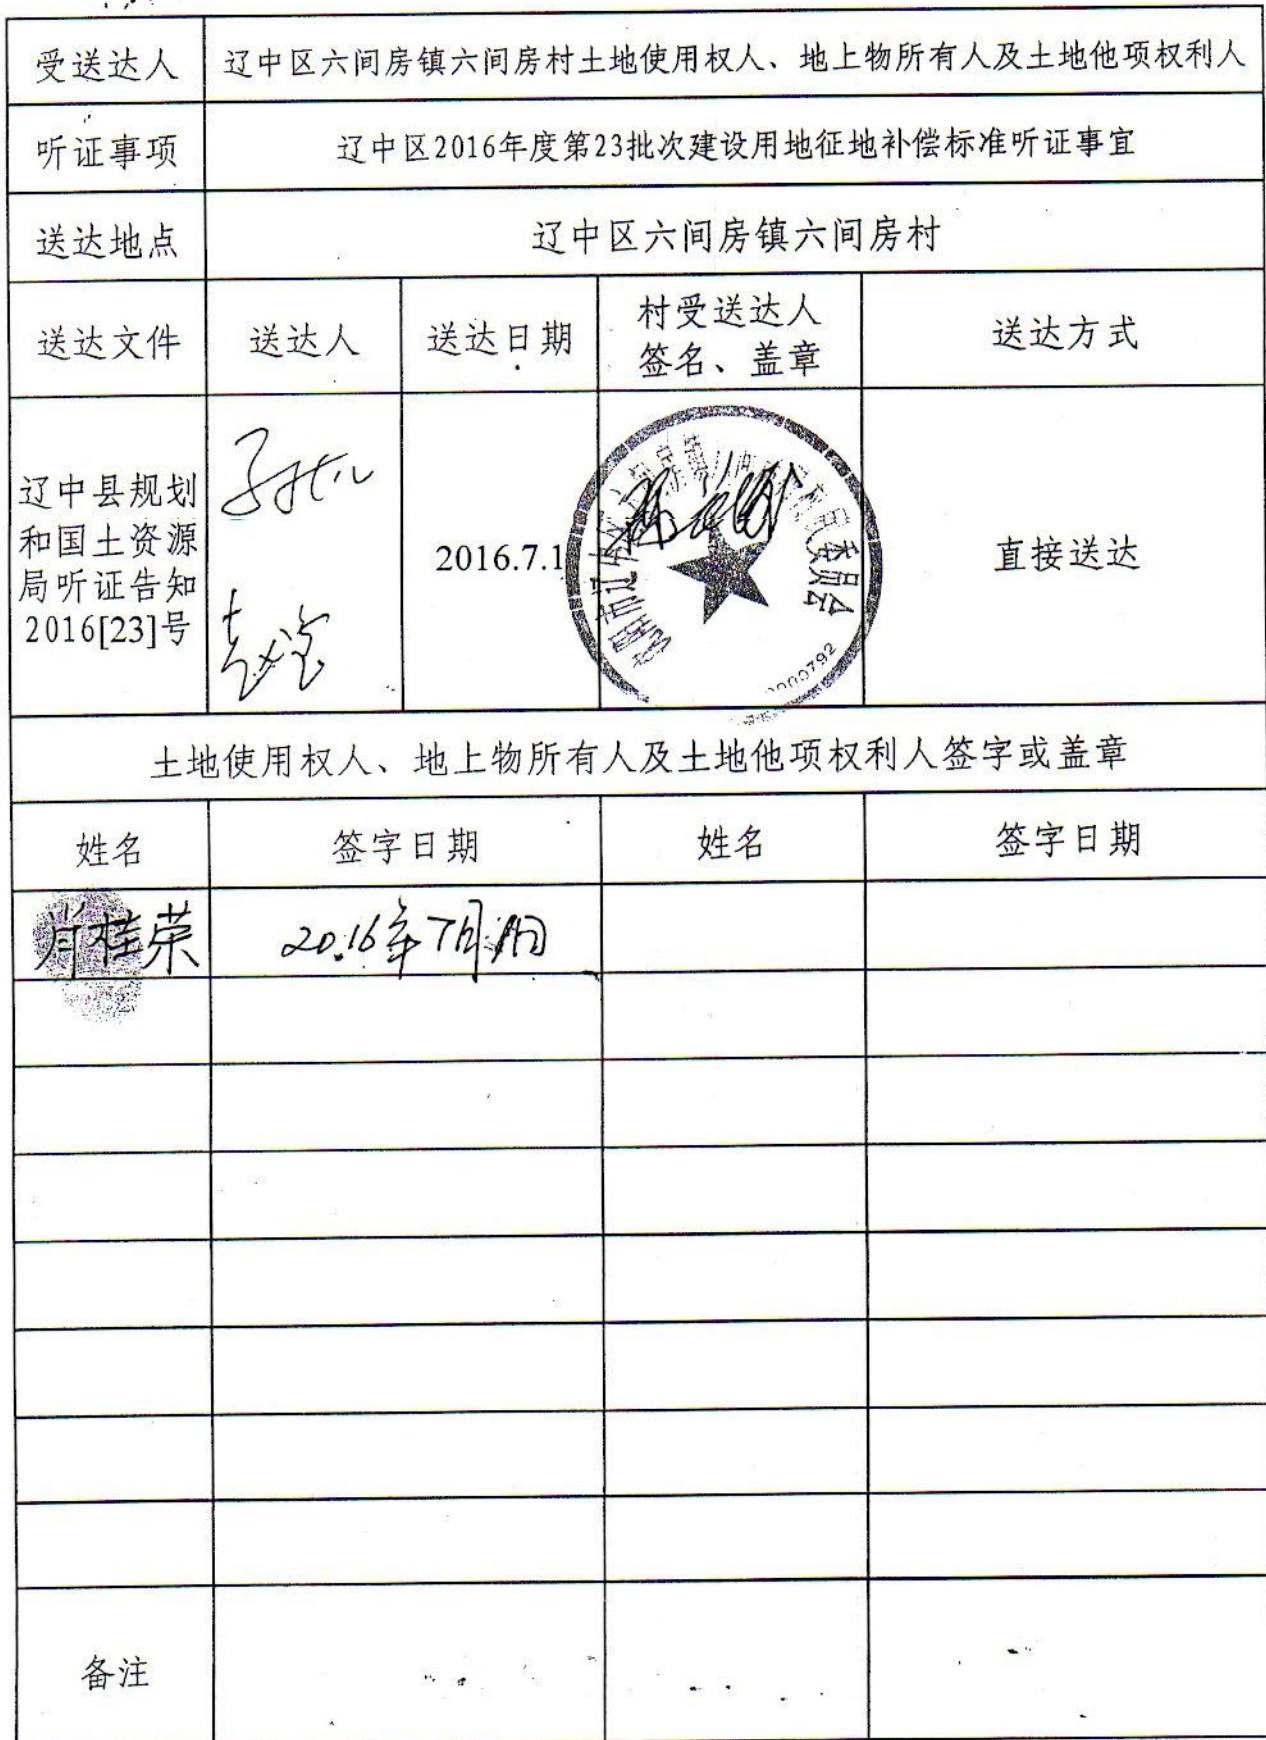 受送达人 辽中区六间房镇六间房村土地使用权人、地上物所有人及土地他项权利人
听证事项 辽中区2016年度第23批次建设用地征地补偿标准听证事宜
送达地点 辽中区六间房镇六间房村
送达文件 送达人 送达日期 村受送达人 送达方式
签名、盖章
辽中县规划
和国土资源
局听证告知
2016[23]号
2016.7.1
村民委员会
0000792
直接送达
土地使用权人、地上物所有人及土地他项权利人签字或盖章
姓名 签字日期 姓名 签字日期
肖桂荣 2016年7月1日
备注